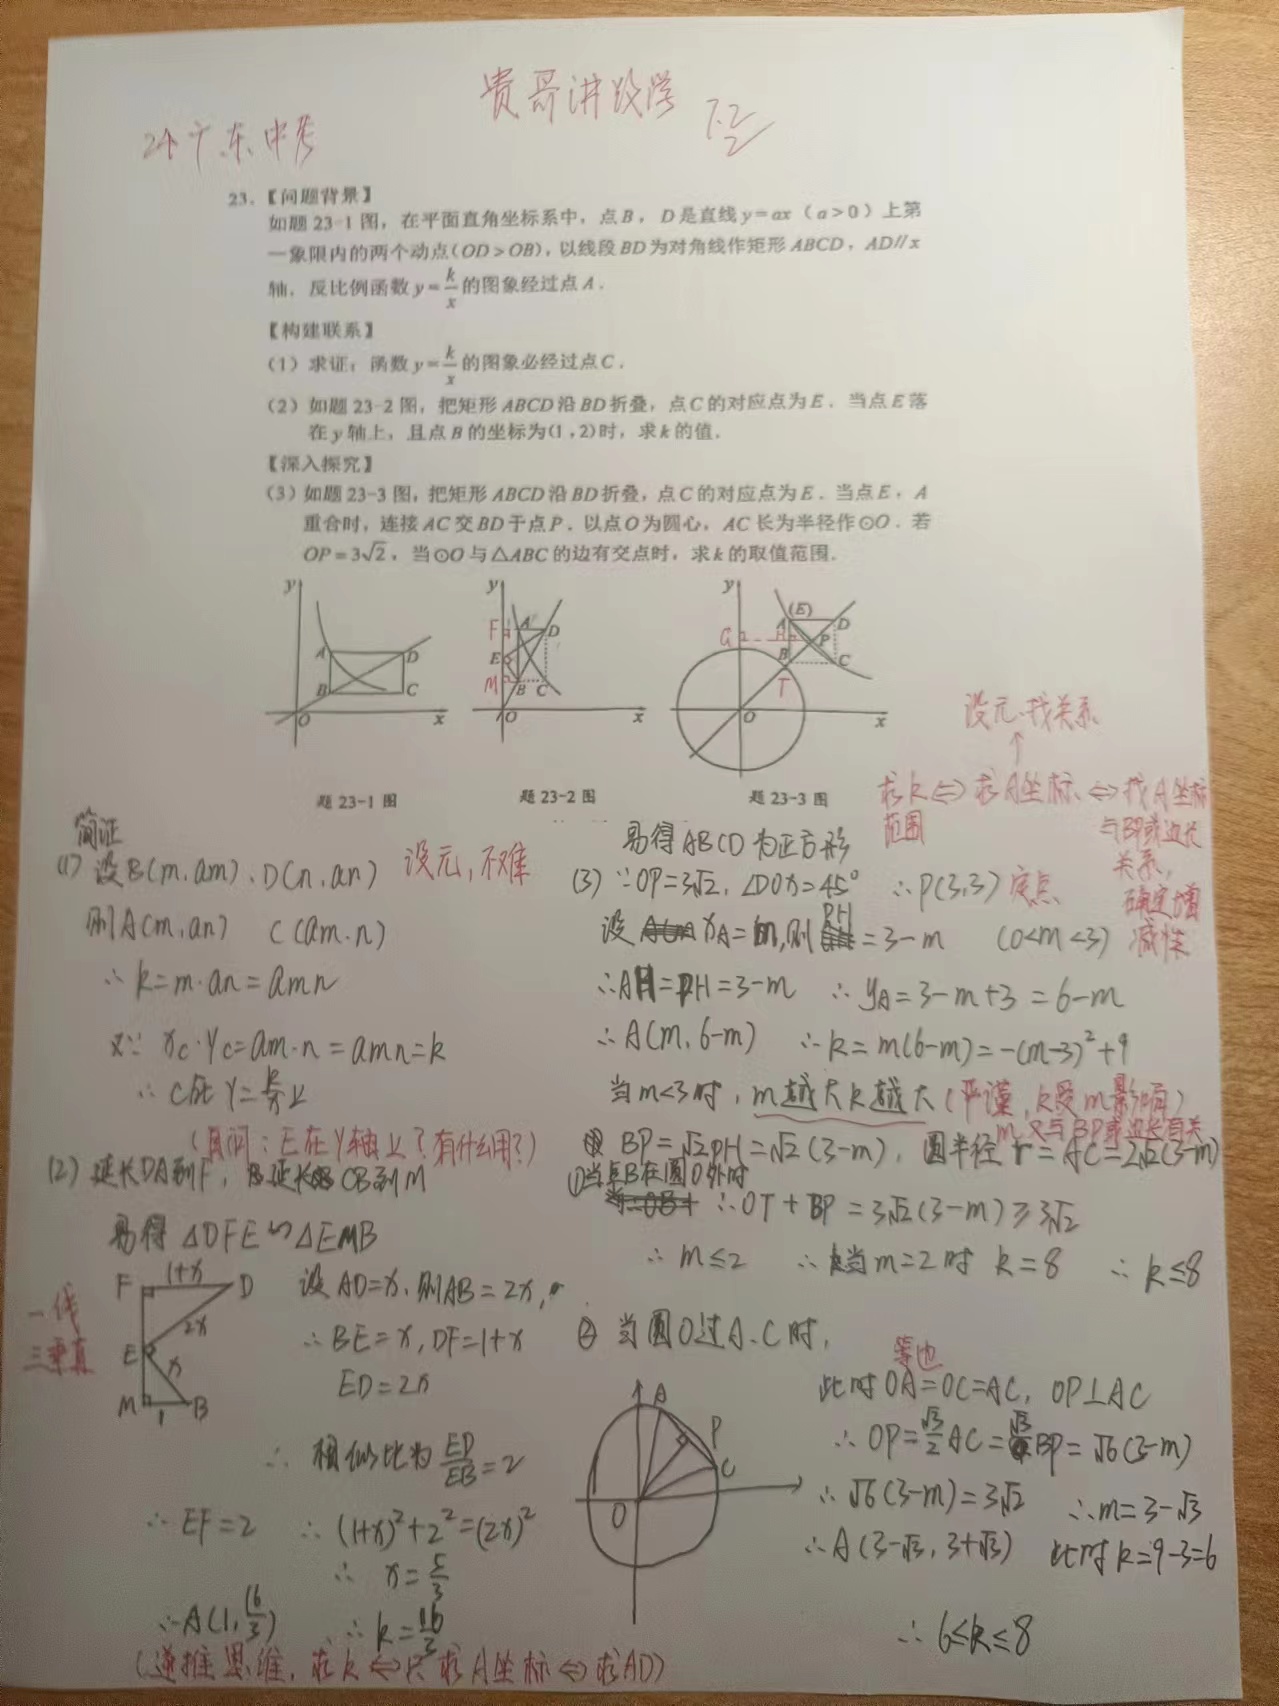 贵哥讲数学
7.22
24广东中考
23.【问题背景】
如题23-1图，在平面直角坐标系中，点B，D是直线y=ax（a>0）上第
一象限内的两个动点(OD>OB)，以线段BD为对角线作矩形ABCD，AD//x
轴．反比例函数y=k/x的图象经过点A．
【构建联系】
（1）求证：函数y=k/x的图象必经过点C．
（2）如题23-2图，把矩形ABCD沿BD折叠，点C的对应点为E．当点E落
在y轴上，且点B的坐标为(1,2)时，求k的值．
【深入探究】
（3）如题23-3图，把矩形ABCD沿BD折叠，点C的对应点为E．当点E，A
重合时，连接AC交BD于点P．以点O为圆心，AC长为半径作⊙O．若
OP=3√2，当⊙O与△ABC的边有交点时，求k的取值范围．
y
A
D
B
C
O
x
题23-1图
y
F
A
D
E
M
B
C
O
x
题23-2图
y
(E)
A
D
G
H
P
B
C
T
O
x
题23-3图
设元、找关系
↑
求k⇔求A坐标⇔找A坐标
范围
与BP或边长
关系，
确定增
减性
简证
(1) 设B(m,am)、D(n,an) 设元，不难
则A(m,an) C(am,n)
∴k=m·an=amn
又∵xc·yc=am·n=amn=k
∴C在y=k/x上
(自问：E在y轴上？有什么用？)
(2) 延长DA到F，延长CB到M
易得△DFE∽△EMB
F 1+x D
2x
E
x
M 1 B
一线
三垂直
设AD=x，则AB=2x，
∴BE=x，DF=1+x
ED=2x
∴相似比为ED/EB=2
∴EF=2 ∴(1+x)²+2²=(2x)²
∴x=5/3
∴A(1,16/3) ∴k=16/3
(逆推思维，求k⇔只求A坐标⇔求AD)
易得ABCD为正方形
(3) ∵OP=3√2，∠DOx=45° ∴P(3,3) 定点
设xA=m，则PH=3-m (0<m<3)
∴AH=PH=3-m ∴yA=3-m+3=6-m
∴A(m,6-m) ∴k=m(6-m)=-(m-3)²+9
当m<3时，m越大k越大(严谨，k受m影响)
m又与BP或边长有关
BP=√2PH=√2(3-m)，圆半径r=AC=2√2(3-m)
①当点B在圆O外时
∴OT+BP=3√2(3-m)≥3√2
∴m≤2 ∴当m=2时 k=8 ∴k≤8
② 当圆O过A、C时，
等边
此时OA=OC=AC，OP⊥AC
∴OP=√3/2AC=√3BP=√6(3-m)
∴√6(3-m)=3√2 ∴m=3-√3
∴A(3-√3,3+√3) 此时k=9-3=6
A
P
C
O
∴6≤k≤8